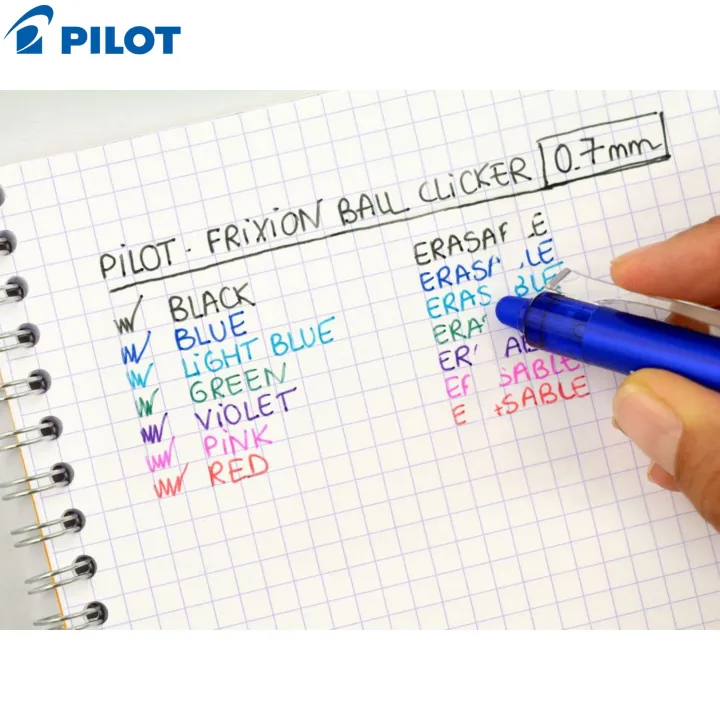 PILOT
PiLOT - FRiXiON BALL CLiCKER 0.7mm
BLACK
BLUE
LiGHT BLUE
GREEN
ViOLET
PiNK
RED
ERASA E
ERAS LE
ERAS BLE
ERA
ER A
E SABLE
E SABLE